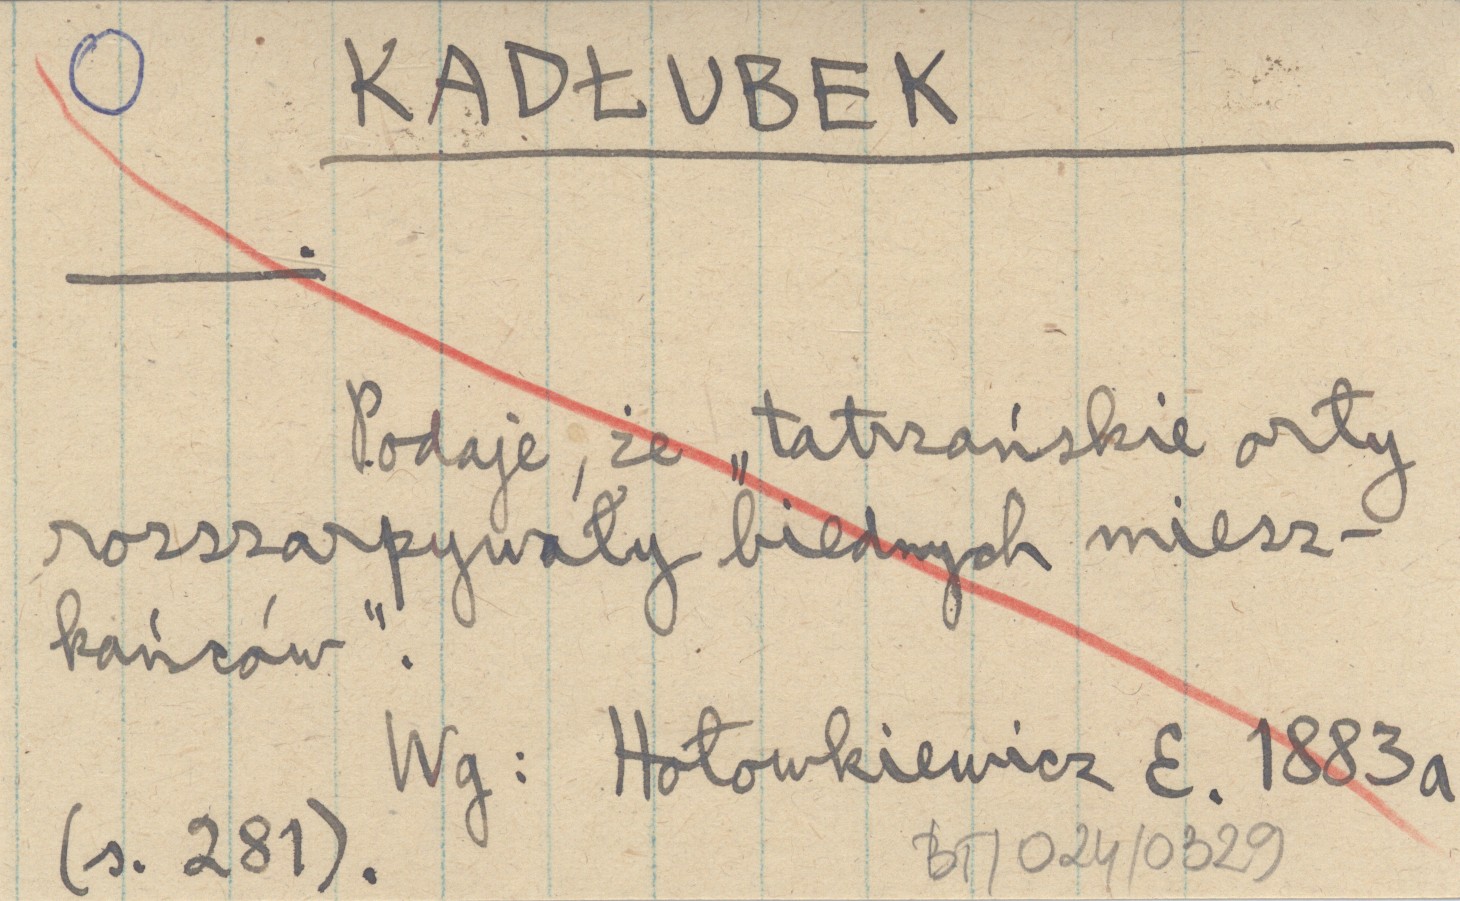 O
KADŁUBEK
Podaje, że „tatrzańskie orły
rozszarpywały biednych miesz-
kańców".
Wg: Hołowkiewicz E. 1883a
(s. 281).
BT/024/0329